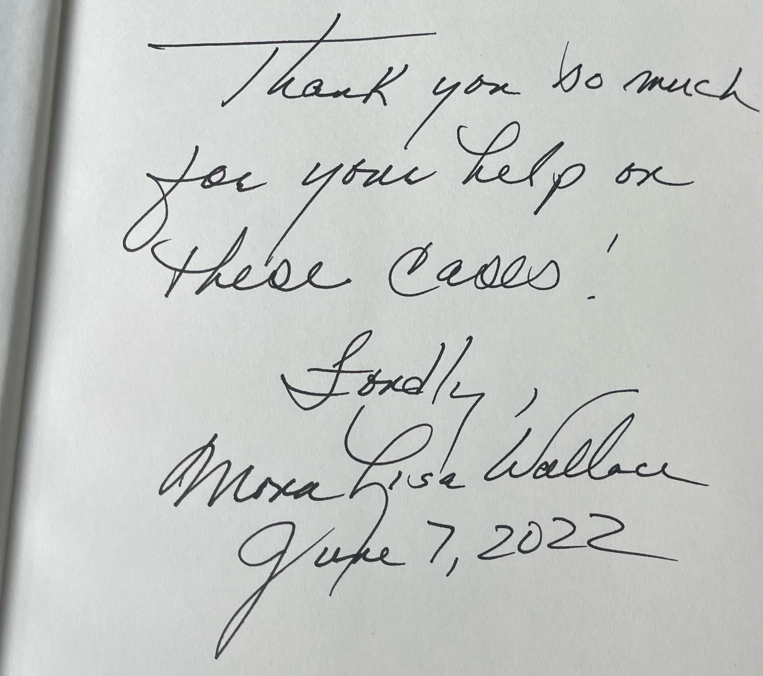 Thank you so much
for your help on
these cases!
Fondly,
Mona Lisa Wallace
June 7, 2022